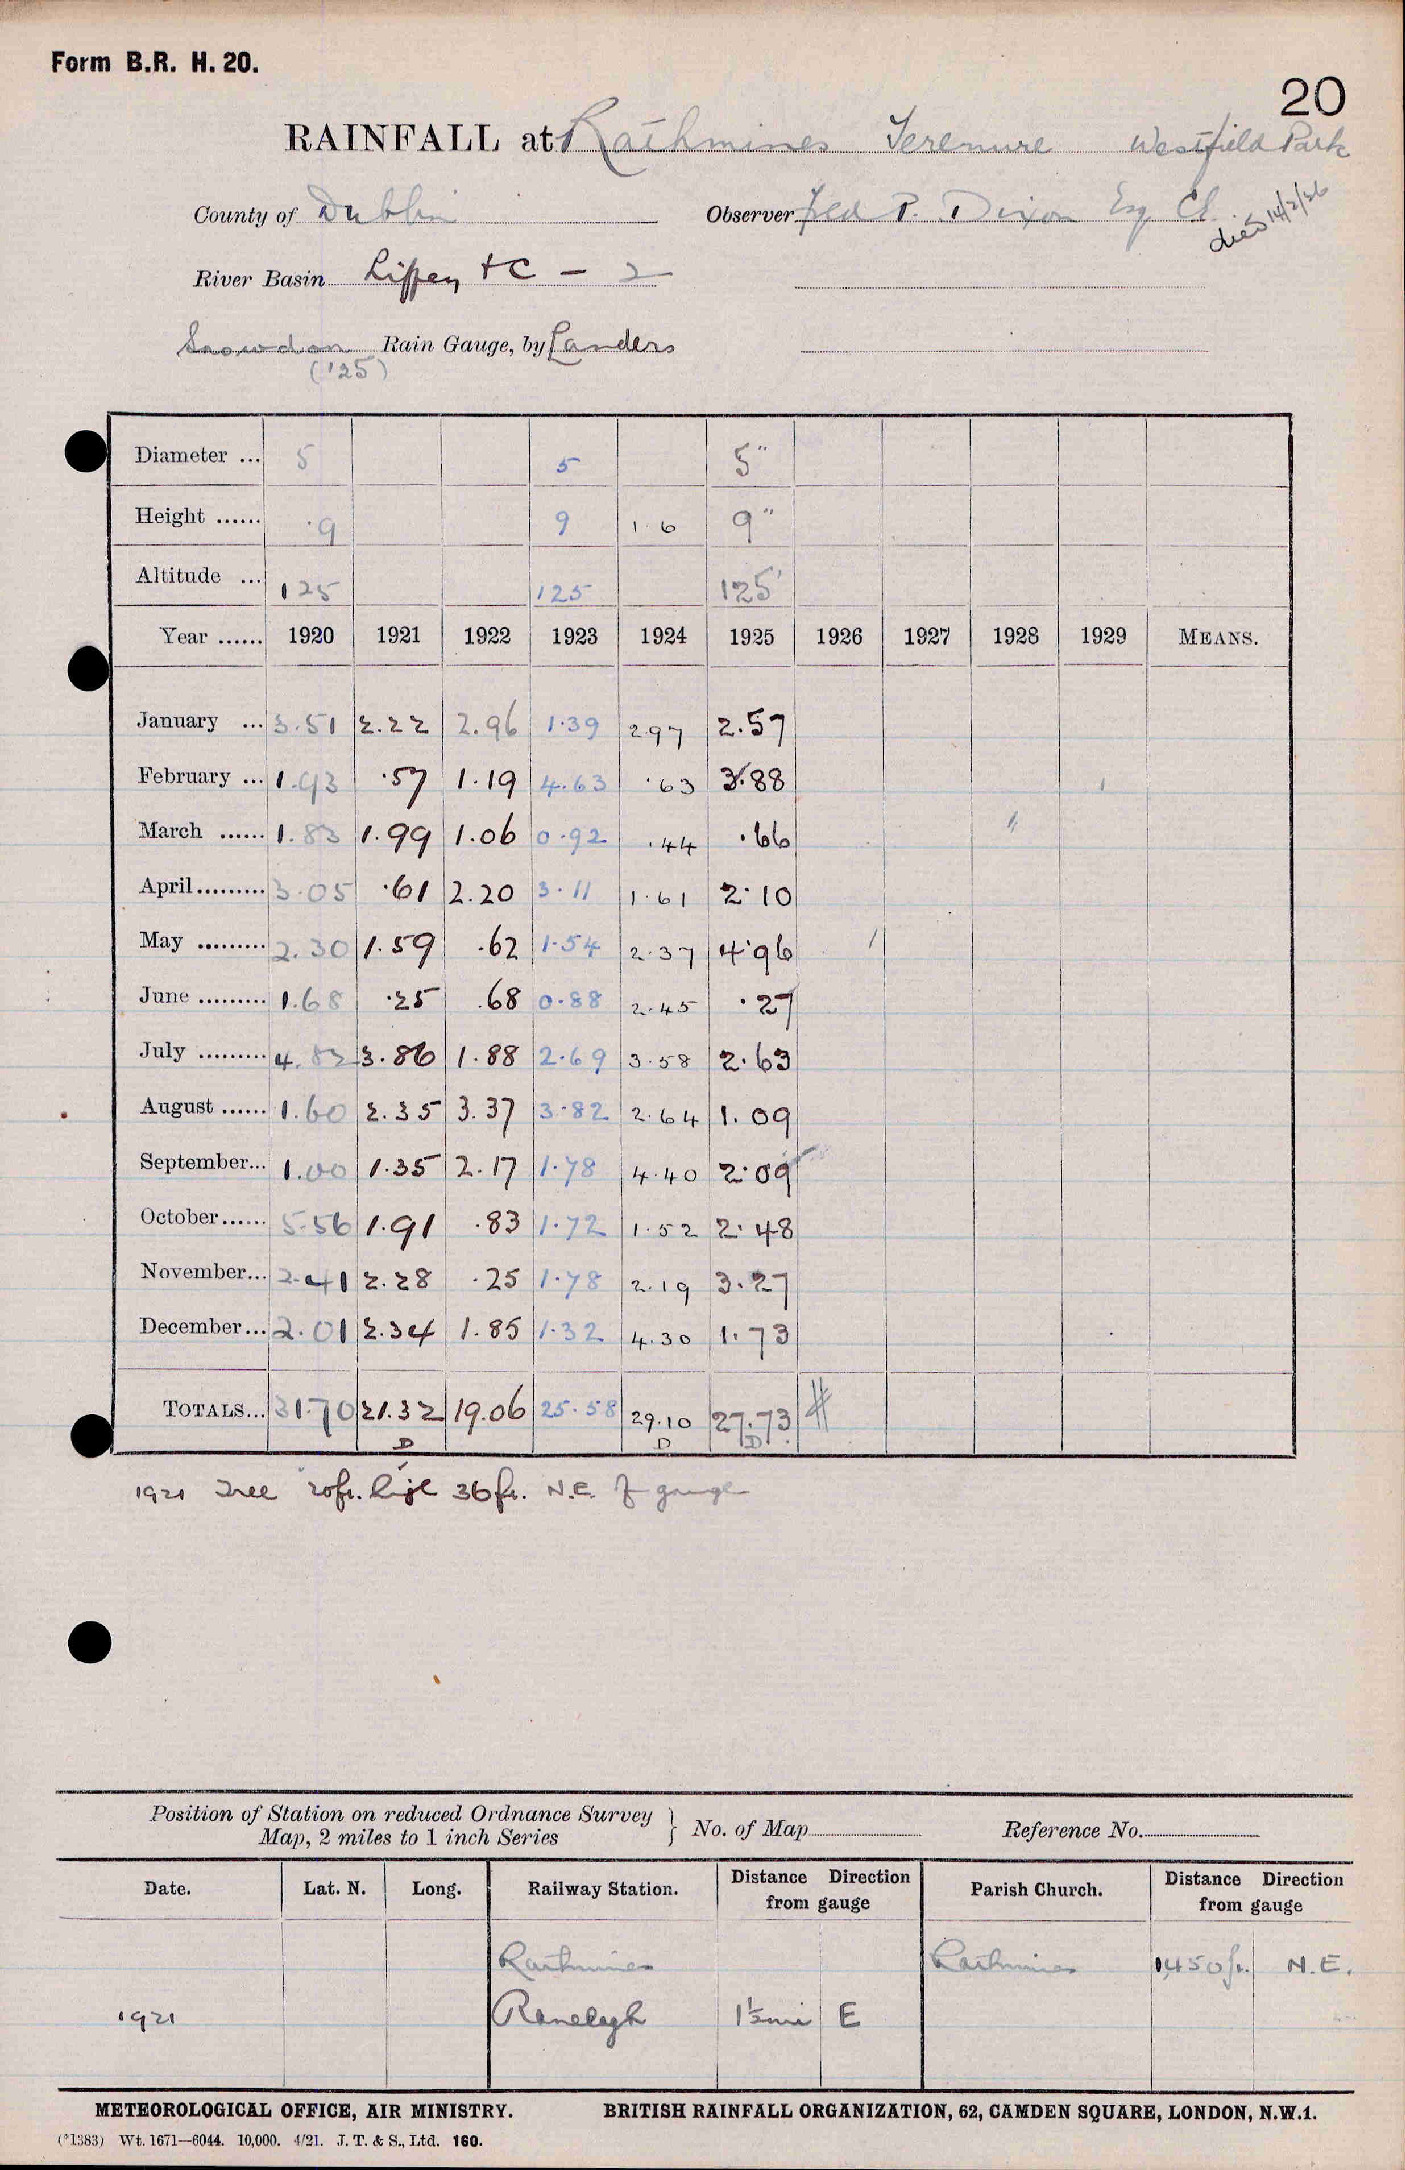 Form B.R. H. 20.
20
RAINFALL at Rathmines Terenure Westfield Park
County of Dublin Observer Fred P. Dixon Esq
died 14/2/26
River Basin Liffey + C – 2
Snowdon Rain Gauge, by Landers
('25)
Diameter ... 5 5 5"
Height ...... .9 9 1.6 9"
Altitude ... 125 125 125'
Year ...... 1920 1921 1922 1923 1924 1925 1926 1927 1928 1929 MEANS.
January ... 3.51 2.22 2.96 1.39 2.97 2.57
February ... 1.93 .57 1.19 4.63 .63 3.88
March ...... 1.83 1.99 1.06 0.92 .44 .66
April......... 3.05 .61 2.20 3.11 1.61 2.10
May ......... 2.30 1.59 .62 1.54 2.37 4.96
June ......... 1.68 .25 .68 0.88 2.45 .27
July ......... 4.82 3.86 1.88 2.69 3.58 2.63
August ...... 1.60 2.35 3.37 3.82 2.64 1.09
September... 1.00 1.35 2.17 1.78 4.40 2.09
October...... 5.56 1.91 .83 1.72 1.52 2.48
November... 2.41 2.28 .25 1.78 2.19 3.27
December... 2.01 2.34 1.85 1.32 4.30 1.73
TOTALS... 31.70 21.32 19.06 25.58 29.10 27.73
D D D
1921 Tree 20ft. high 36 ft. N.E. of gauge
Position of Station on reduced Ordnance Survey
Map, 2 miles to 1 inch Series } No. of Map Reference No.
Date. Lat. N. Long. Railway Station. Distance Direction from gauge Parish Church. Distance Direction from gauge
Rathmines Rathmines 1,450 ft. N.E.
1921 Ranelagh 1½ mi E
METEOROLOGICAL OFFICE, AIR MINISTRY. BRITISH RAINFALL ORGANIZATION, 62, CAMDEN SQUARE, LONDON, N.W.1.
(*1383) Wt. 1671—6044. 10,000. 4/21. J. T. & S., Ltd. 160.